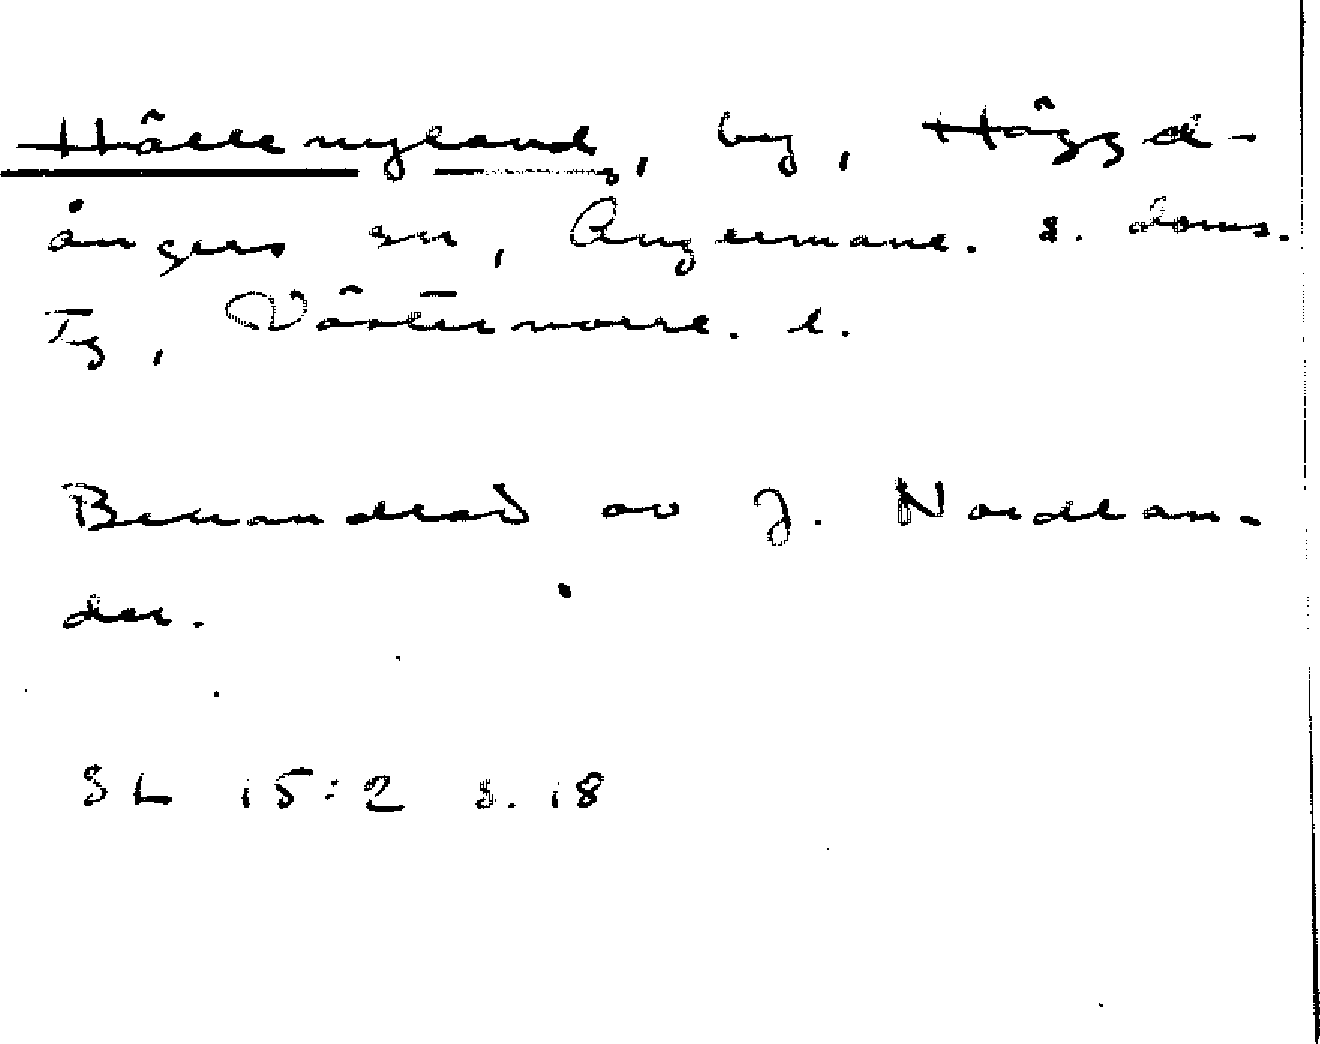 Hällenyland, by, Häggd-
ångers sn, Ångermanl. s. doms.
Tg, Västernorrl. l.
Behandlad av J. Nordlan-
der.
SL 15:2 s. 18